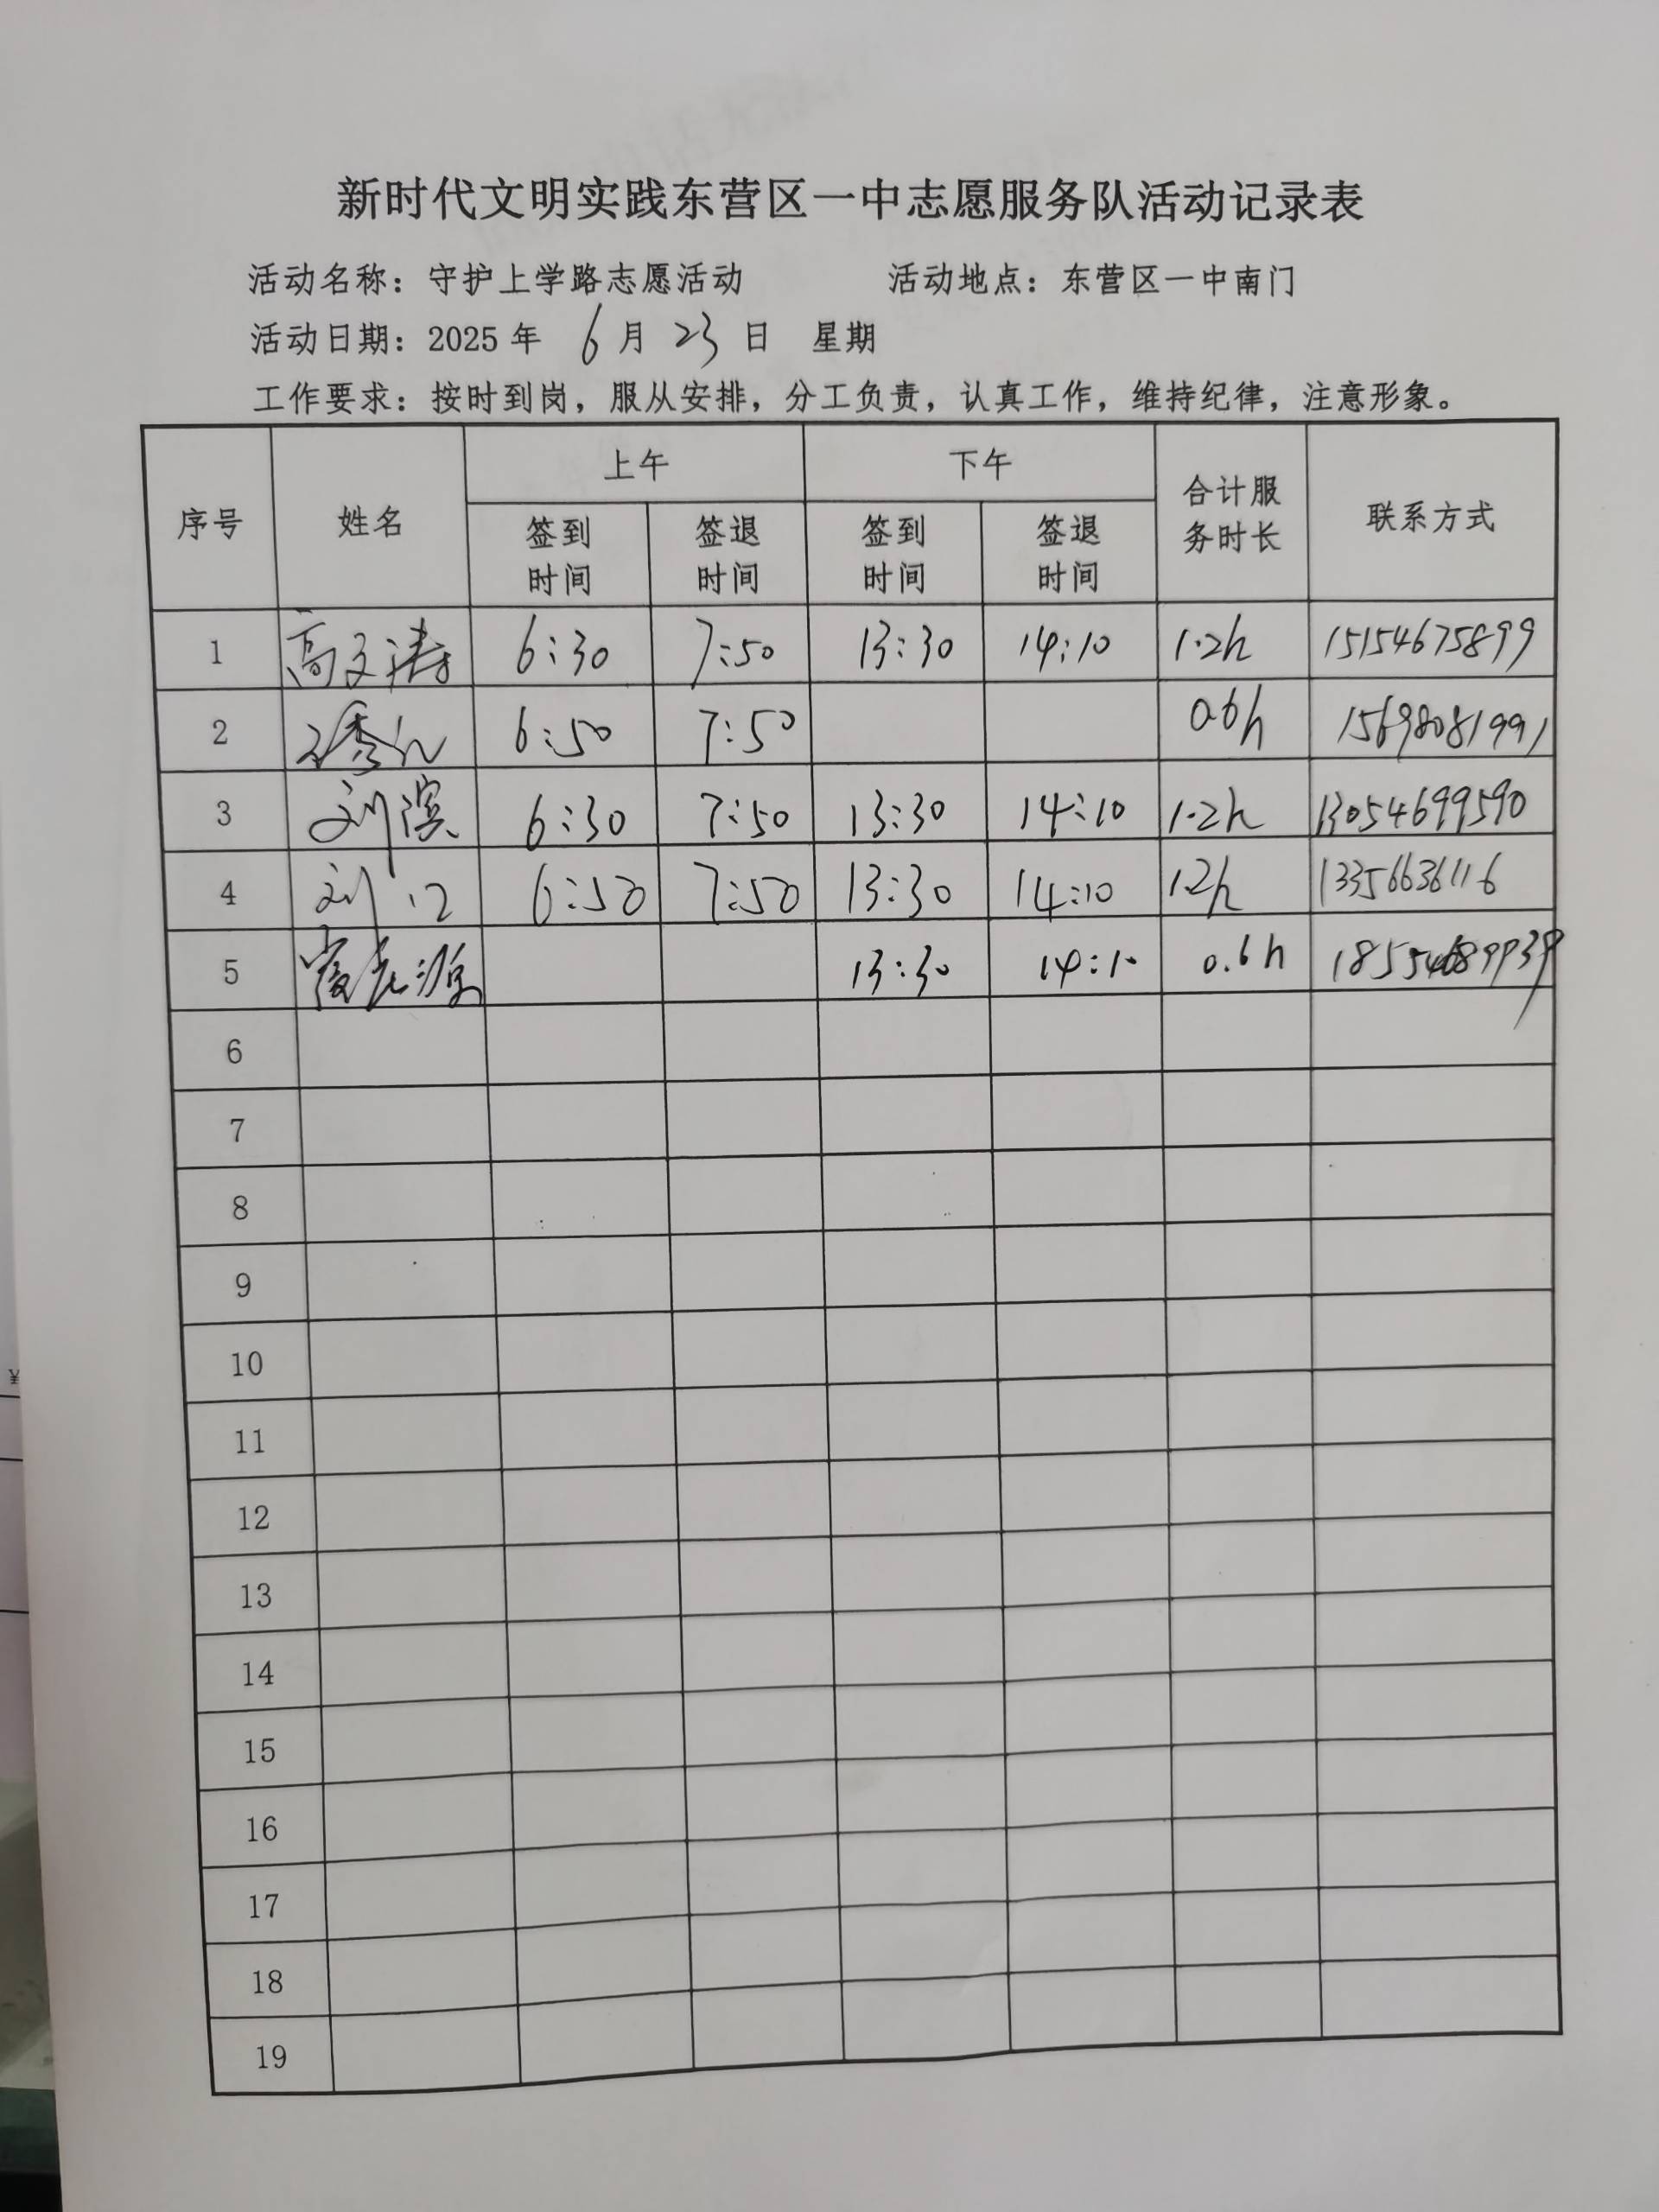 新时代文明实践东营区一中志愿服务队活动记录表
活动名称：守护上学路志愿活动 活动地点：东营区一中南门
活动日期：2025年 6月 23日 星期
工作要求：按时到岗，服从安排，分工负责，认真工作，维持纪律，注意形象。
序号 姓名 上午 下午 合计服务时长 联系方式
签到时间 签退时间 签到时间 签退时间
1 高文涛 6:30 7:50 13:30 14:10 1.2h 15154675899
2 6:50 7:50 0.6h 15698081991
3 刘滨 6:30 7:50 13:30 14:10 1.2h 13054699590
4 刘 6:50 7:50 13:30 14:10 1.2h 13356636116
5 13:30 14:10 0.6h
6
7
8
9
10
11
12
13
14
15
16
17
18
19
¥